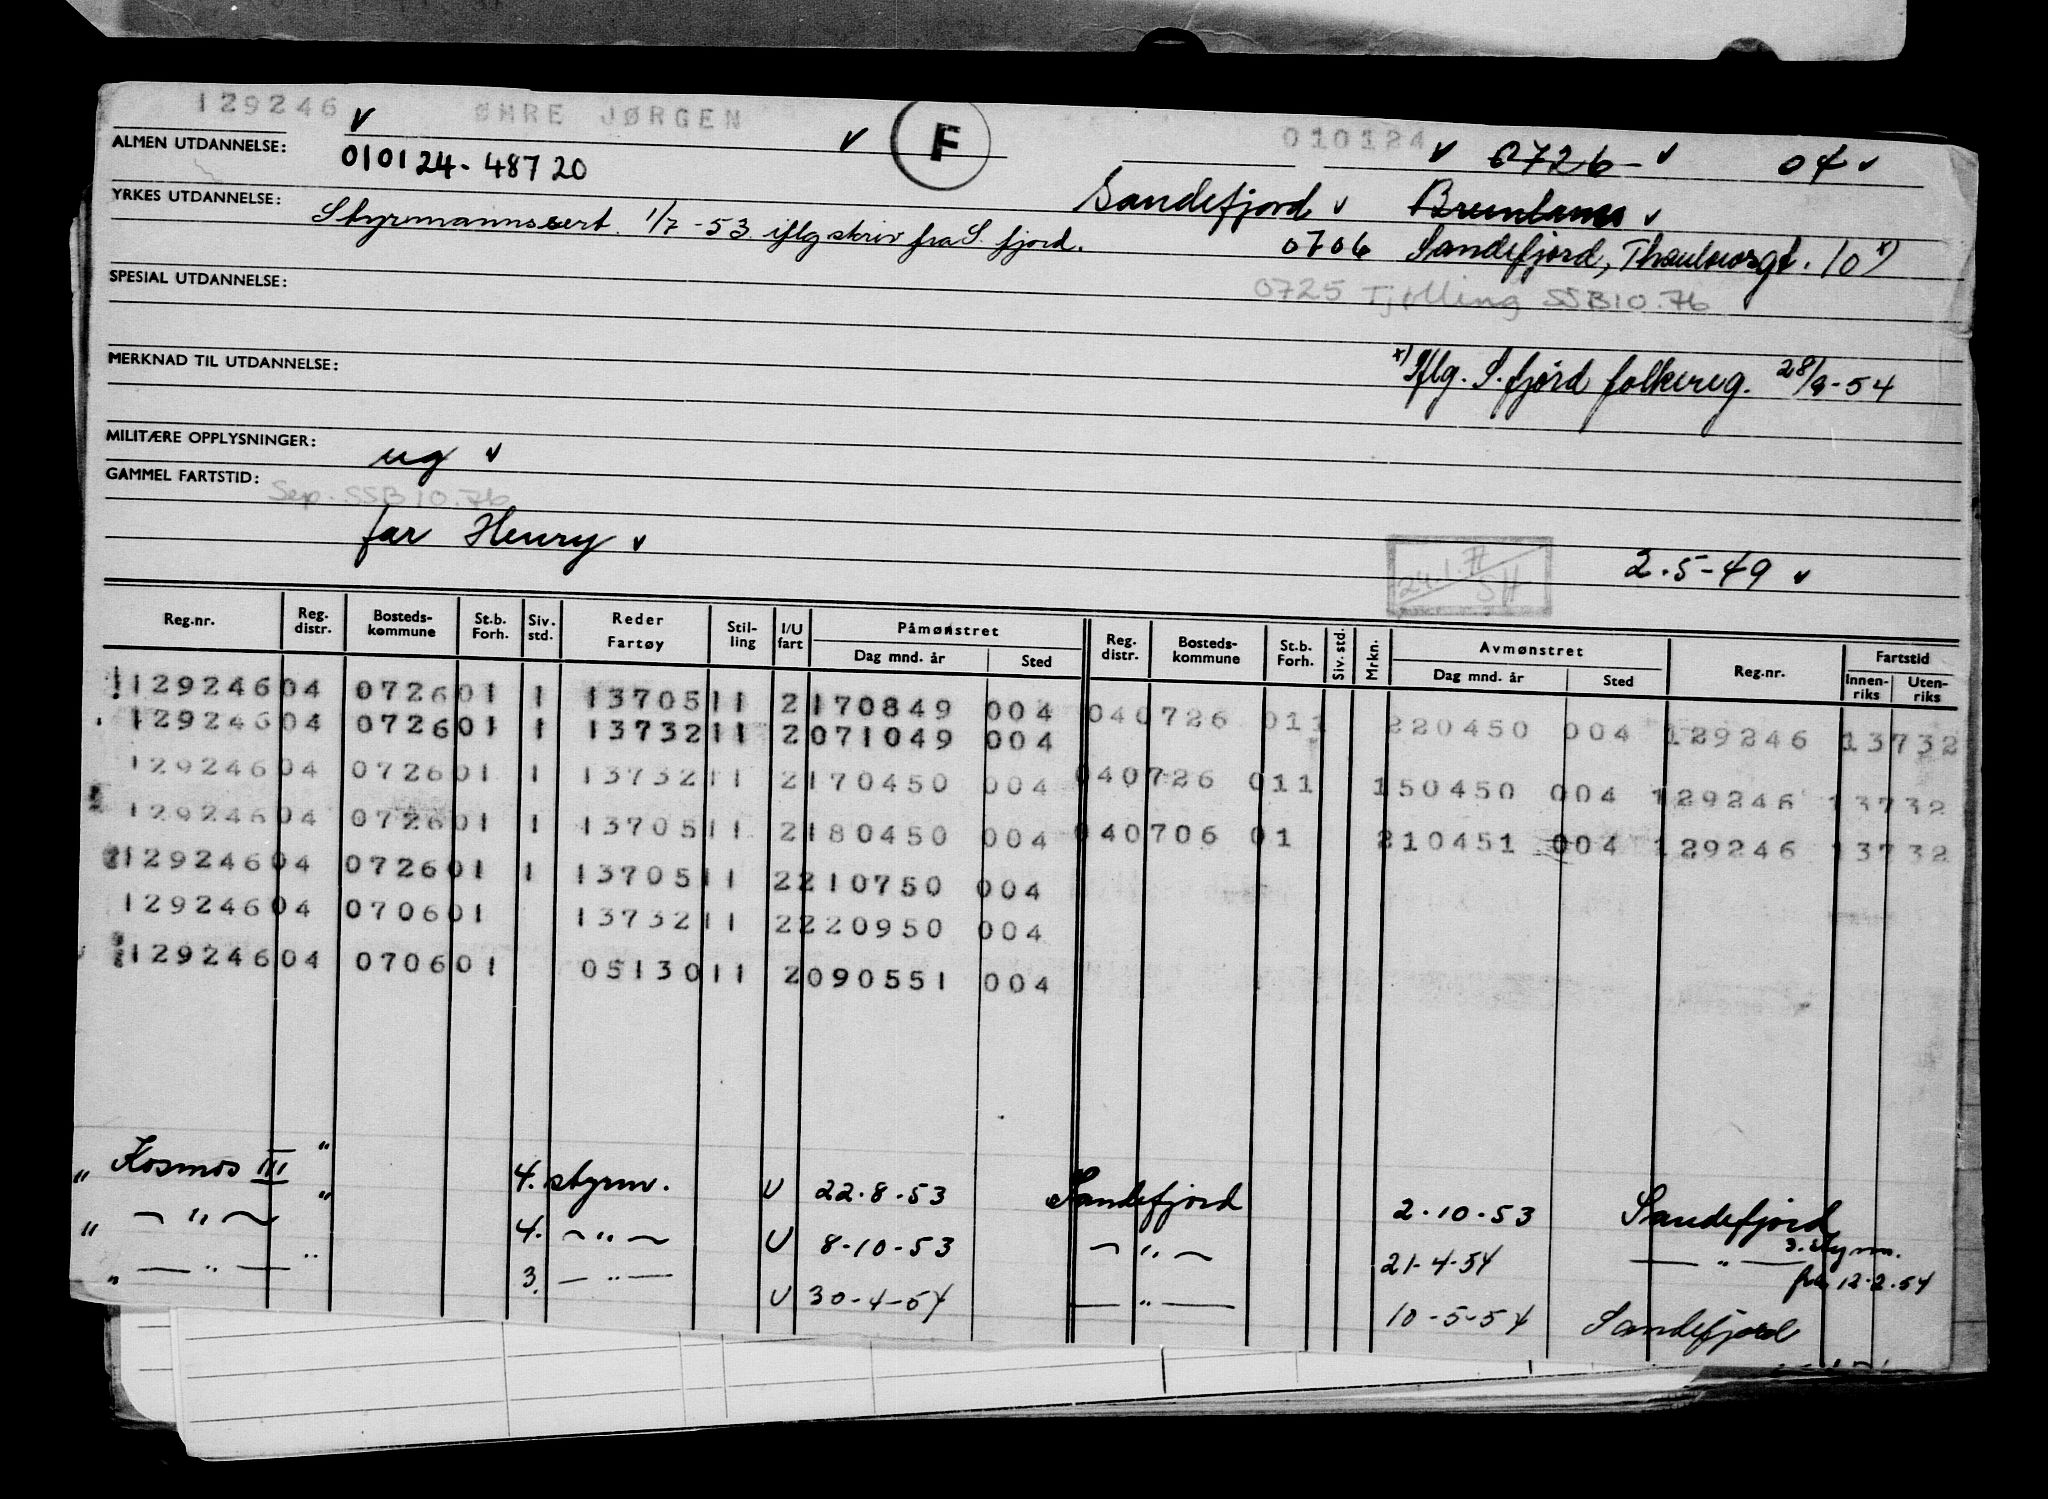 129246 ØMRE JØRGEN F 010124
ALMEN UTDANNELSE: 010124-48720 0726- 04
YRKES UTDANNELSE: Sandefjord Brunlanes
Styrmannssert. 1/7-53 iflg skriv fra S. fjord. 0706 Sandefjord, Thaulowsgt. 10 x)
SPESIAL UTDANNELSE: 0725 Tjølling SSB10.76
MERKNAD TIL UTDANNELSE: x) Iflg. S. fjord folkereg. 28/9-54
MILITÆRE OPPLYSNINGER: ug
GAMMEL FARTSTID: Sep. SSB10.76
far Henry 2.5-49
Reg.nr. Reg. distr. Bosteds-kommune St.b. Forh. Siv. std. Reder Fartøy Stil-ling I/U fart Påmønstret Dag mnd. år Sted Reg. distr. Bosteds-kommune St.b. Forh. Siv. std. Mrkn. Avmønstret Dag mnd. år Sted Reg.nr. Fartstid Innen-riks Uten-riks
129246 04 0726 01 1 13705 11 2 170849 004 04 0726 01 1 220450 004 129246 13732
129246 04 0726 01 1 13732 11 2 071049 004
129246 04 0726 01 1 13732 11 2 170450 004 04 0726 01 1 150450 004 129246 13732
129246 04 0726 01 1 13705 11 2 180450 004 04 0706 01 210451 004 129246 13732
129246 04 0726 01 1 13705 11 2 210750 004
129246 04 0706 01 13732 11 2 220950 004
129246 04 0706 01 05130 11 2 090551 004
" Kosmos III " 4. styrm. U 22.8-53 Sandefjord 2-10-53 Sandefjord
" — " — " 4. — " — U 8-10-53 — " — 21-4-54 — " — 3. styrm. fra 12.2.54
" — " — " 3. — " — U 30-4-54 — " — 10-5-54 Sandefjord